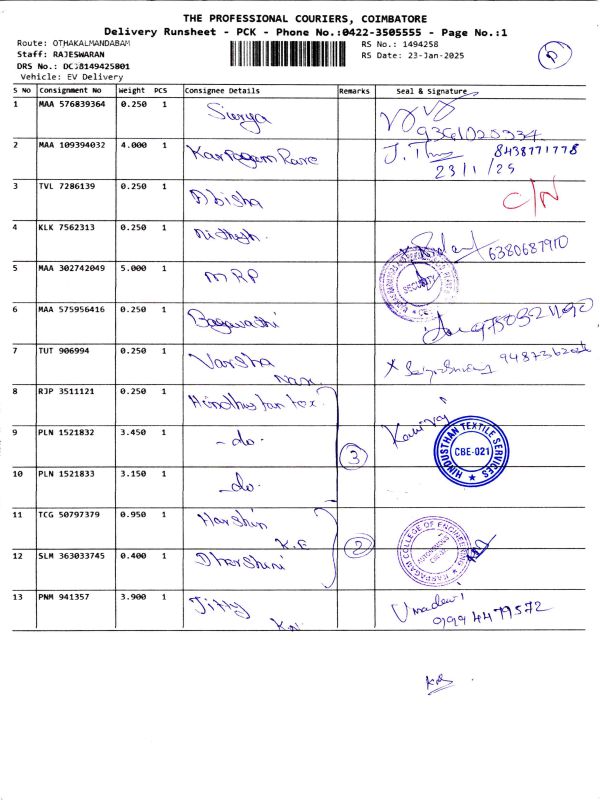 THE PROFESSIONAL COURIERS, COIMBATORE
Delivery Runsheet - PCK - Phone No.:0422-3505555 - Page No.:1
Route: OTHAKALMANDABAM
Staff: RAJESWARAN
RS No.: 1494258
RS Date: 23-Jan-2025
DRS No.:
Vehicle: EV Delivery
S No Consignment No Weight PCS Consignee Details Remarks Seal & Signature
1 MAA 576839364 0.250 1 Surya
9361025334
2 MAA 109394032 4.000 1 8438771778
23/1/25
3 TVL 7286139 0.250 1 Abisha C/N
4 KLK 7562313 0.250 1 Nithish. 6380687910
5 MAA 302742049 5.000 1 MRP
SECURITY
6 MAA 575956416 0.250 1 Bagavathi
7 TUT 906994 0.250 1 Varsha
8 RJP 3511121 0.250 1 Hindhustan tex.
9 PLN 1521832 3.450 1 -do. 3
HINDUSTHAN TEXTILE SERVICES
CBE-021
10 PLN 1521833 3.150 1 -do.
11 TCG 50797379 0.950 1 Harshin
K.E 2
KARPAGAM COLLEGE OF ENGINEERING
12 SLM 363033745 0.400 1 Dharshini
13 PNM 941357 3.900 1 Jitty Umadevi
9994479572